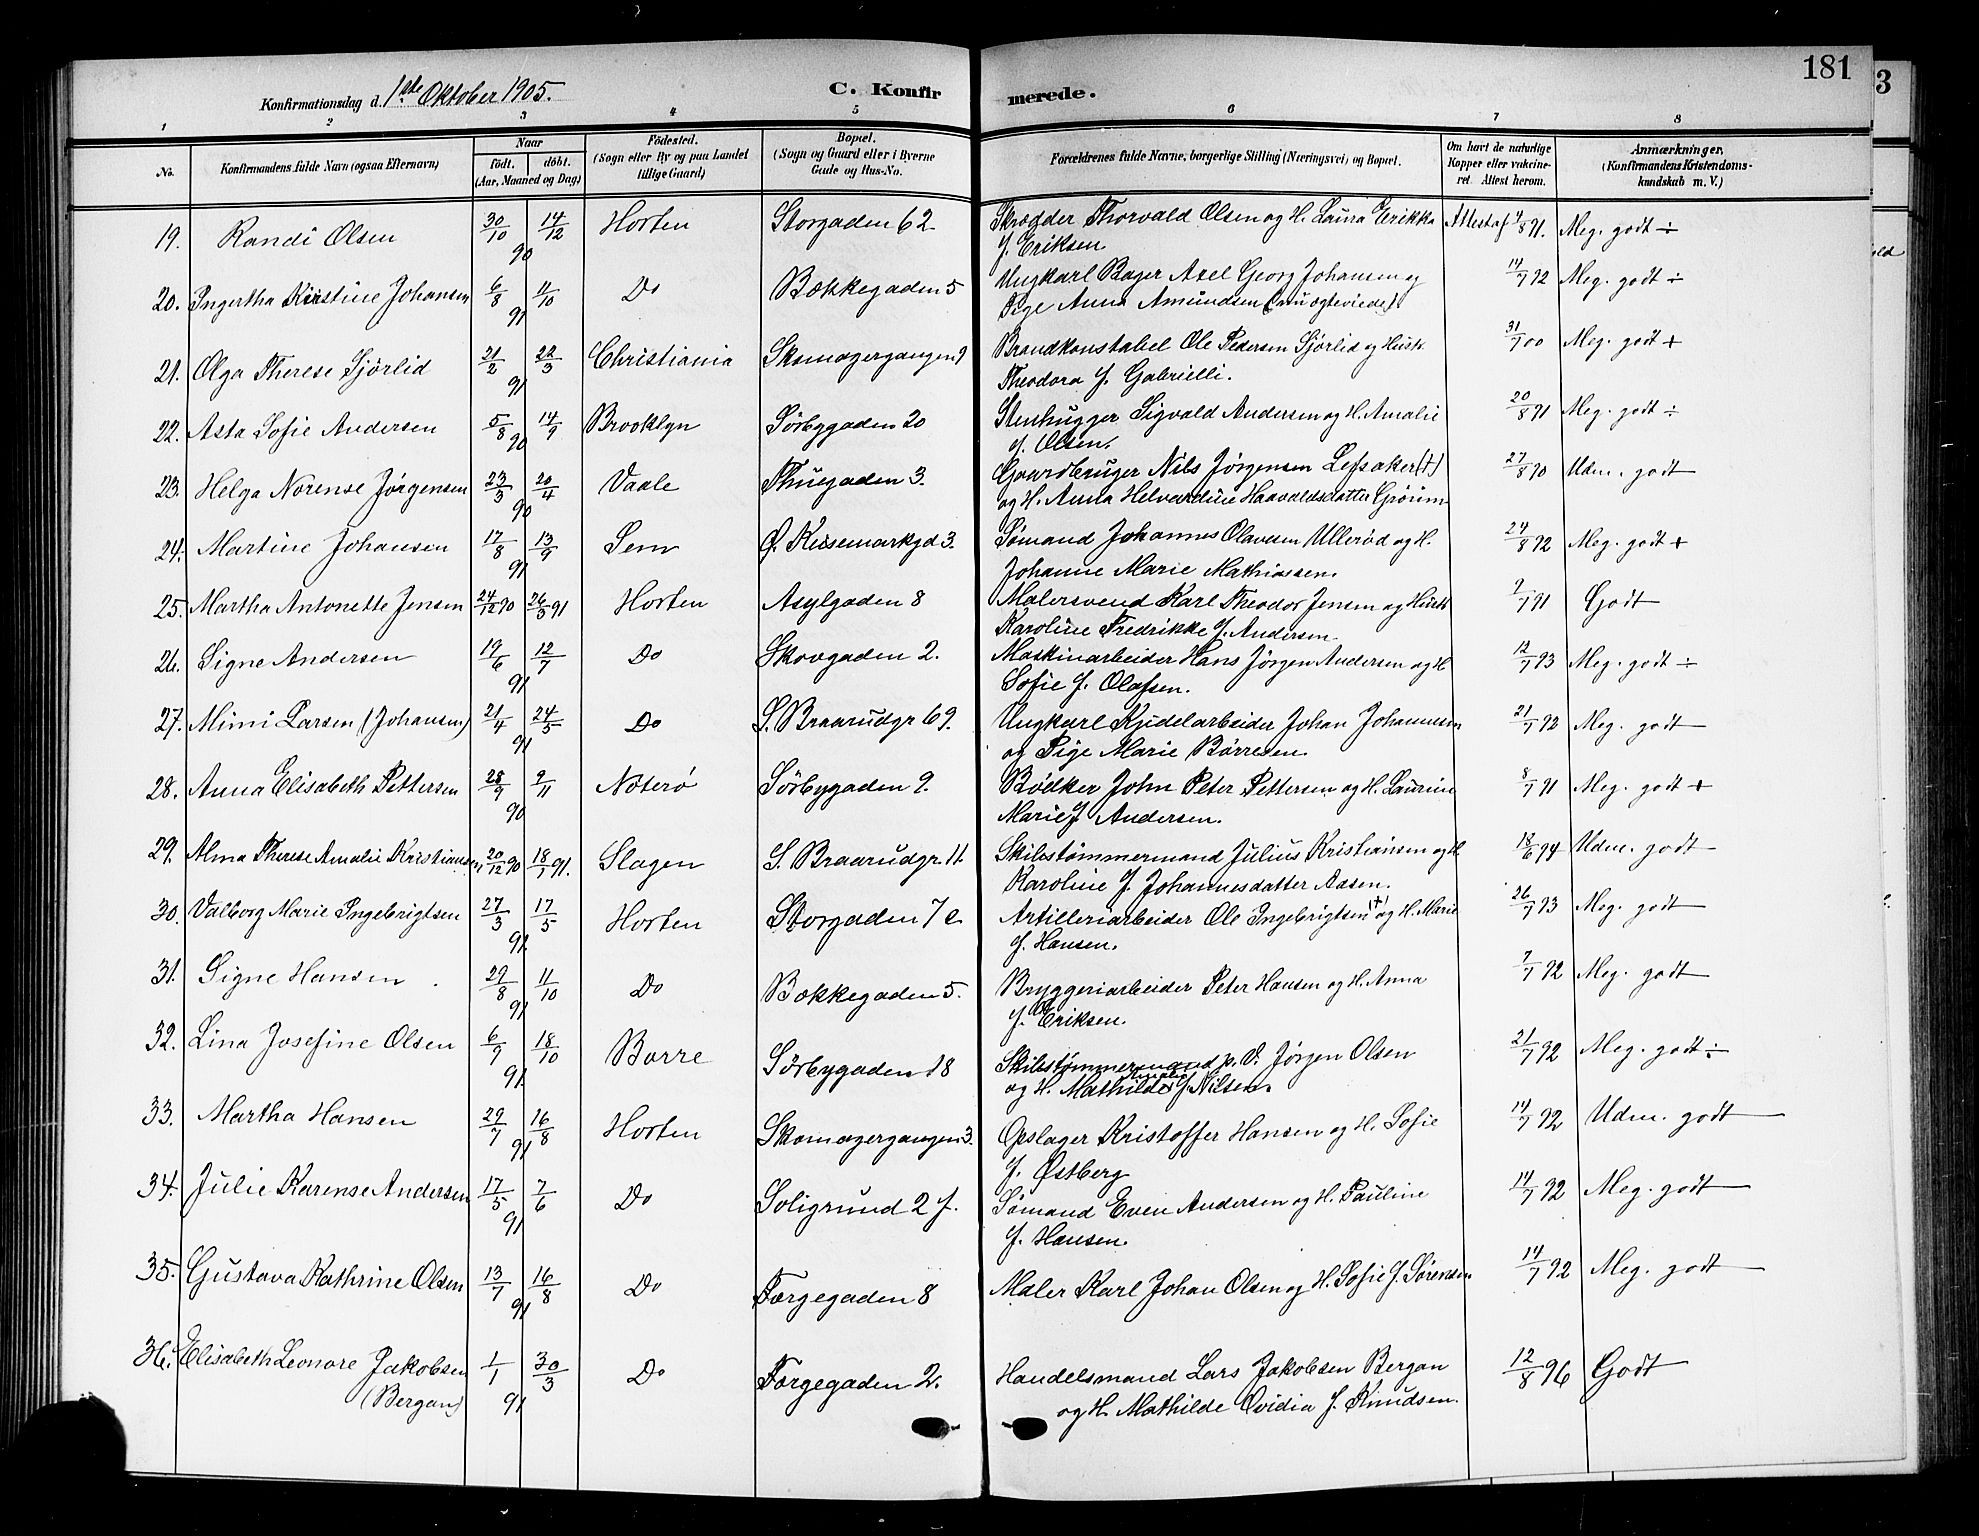 181
3
Konfirmationsdag d. 1ste Oktober 1905.
C. Konfirmerede.
1 2 3 4 5 6 7 8
No.
Konfirmandens fulde Navn (ogsaa Efternavn)
Naar
født. døbt.
(Aar, Maaned og Dag)
Fødested.
(Sogn eller By og paa Landet
tillige Gaard)
Bopæl.
(Sogn og Gaard eller i Byerne
Gade og Hus-No.
Forældrenes fulde Navne, borgerlige Stilling (Næringsvei) og Bopæl.
Om havt de naturlige
Kopper eller vakcine-
ret. Attest herom.
Anmærkninger,
(Konfirmandens Kristendoms-
kundskab m. V.)
19. Randi Olsen 30/10 90 14/12 Horten Storgaden 62 Skrædder Thorvald Olsen og H. Laura Erikka Attest af 4/8 91. Meg. godt ÷
f. Eriksen
20. Ingertha Kristine Johansen 6/8 91 11/10 Do Bækkegaden 5 Ungkarl Bager Axel Georg Johansen og 14/7 92 Meg. godt ÷
Pige Anna Amundsen (nu ægteviede)
21. Olga Therese Sjørlid 21/2 91 22/3 Christiania Skomagergangen 9 Brandkonstabel Ole Pedersen Sjørlid og Hustr. 31/7 00 Meg. godt +
Theodora f. Gabrielli.
22. Asta Sofie Andersen 5/8 90 14/9 Brooklyn Sörbygaden 20 Stenhugger Sigvald Andersen og H. Amalie 20/8 91 Meg. godt ÷
f. Olsen.
23. Helga Norense Jørgensen 23/3 90 20/4 Vaale Thuegaden 3. Gaardbruger Nils Jørgensen Lefsaker (†) 27/8 90 Udm. godt
og H. Anna Helvardine Haavaldsdatter Grorim
24. Martine Johansen 17/8 91 13/9 Sem Ø. Keisemarkgd 3. Sømand Johannes Olavesen Ullerød og H. 24/8 92 Meg. godt +
Johanne Marie Mathiassen.
25. Martha Antonette Jensen 24/12 90 26/3 91 Horten Asylgaden 8 Malersvend Karl Theodor Jensen og Hustr 2/7 91 Godt
Karoline Fredrikke f. Andersen.
26. Signe Andersen 19/6 91 12/7 Do Skovgaden 2. Maskinarbeider Hans Jørgen Andersen og H 12/7 93 Meg. godt ÷
Sofie f. Olafsen.
27. Mimi Larsen (Johansen) 21/4 91 24/5 Do S. Braarudgr 69. Ungkarl Kjedelarbeider Johan Johannesen 21/7 92 Meg. godt
og Pige Marie Børresen.
28. Anna Elisabeth Pettersen 28/9 90 9/11 Noterø Sörbygaden 9. Bødker John Peter Pettersen og H. Laurine 8/7 91 Meg. godt +
Marie f Andersen.
29. Alma Therese Amalie Kristiansen 20/12 90 18/1 91. Slagen S. Braarudgr. 11. Skibstømmermand Julius Kristiansen og H 18/6 94 Udm. godt
Karoline f. Johannesdatter Aasen.
30. Valborg Marie Ingebrigtsen 27/3 91 17/5 Horten Storgaden 7 c Artilleriarbeider Ole Ingebrigtsen (†) og H. Marie 26/7 93 Meg. godt
f. Hansen.
31. Signe Hansen 29/8 91 11/10 Do Bækkegaden 5. Bryggeriarbeider Peter Hansen og H. Anna 7/7 92 Meg. godt
f. Eriksen.
32. Lina Josefine Olsen 6/9 91 18/10 Borre Sörbygaden 18 Skibstömmermand p. V. Jörgen Olsen 21/7 92 Meg. godt ÷
og H. Mathilde Amalie f. Nilsen.
33. Martha Hansen 29/7 91 16/8 Horten Skomagergangen 3. Opslager Kristoffer Hansen og H. Sofie 14/7 92 Udm. godt
f. Østberg
34. Julie Karense Andersen 17/5 91 7/6 Do Soligrund 2 f. Sømand Even Andersen og H. Pauline 14/7 92 Meg. godt
f. Hansen.
35. Gustava Kathrine Olsen 13/7 91 16/8 Do Færgegaden 8 Maler Karl Johan Olsen og H. Sofie f. Sørensen 14/7 92 Meg. godt
36. Elisabeth Leonore Jakobsen 1/1 91 30/3 Do Færgegaden 2. Handelsmand Lars Jakobsen Bergan 12/8 96 Godt
(Bergan) og H. Mathilde Ovidia f. Knudsen.